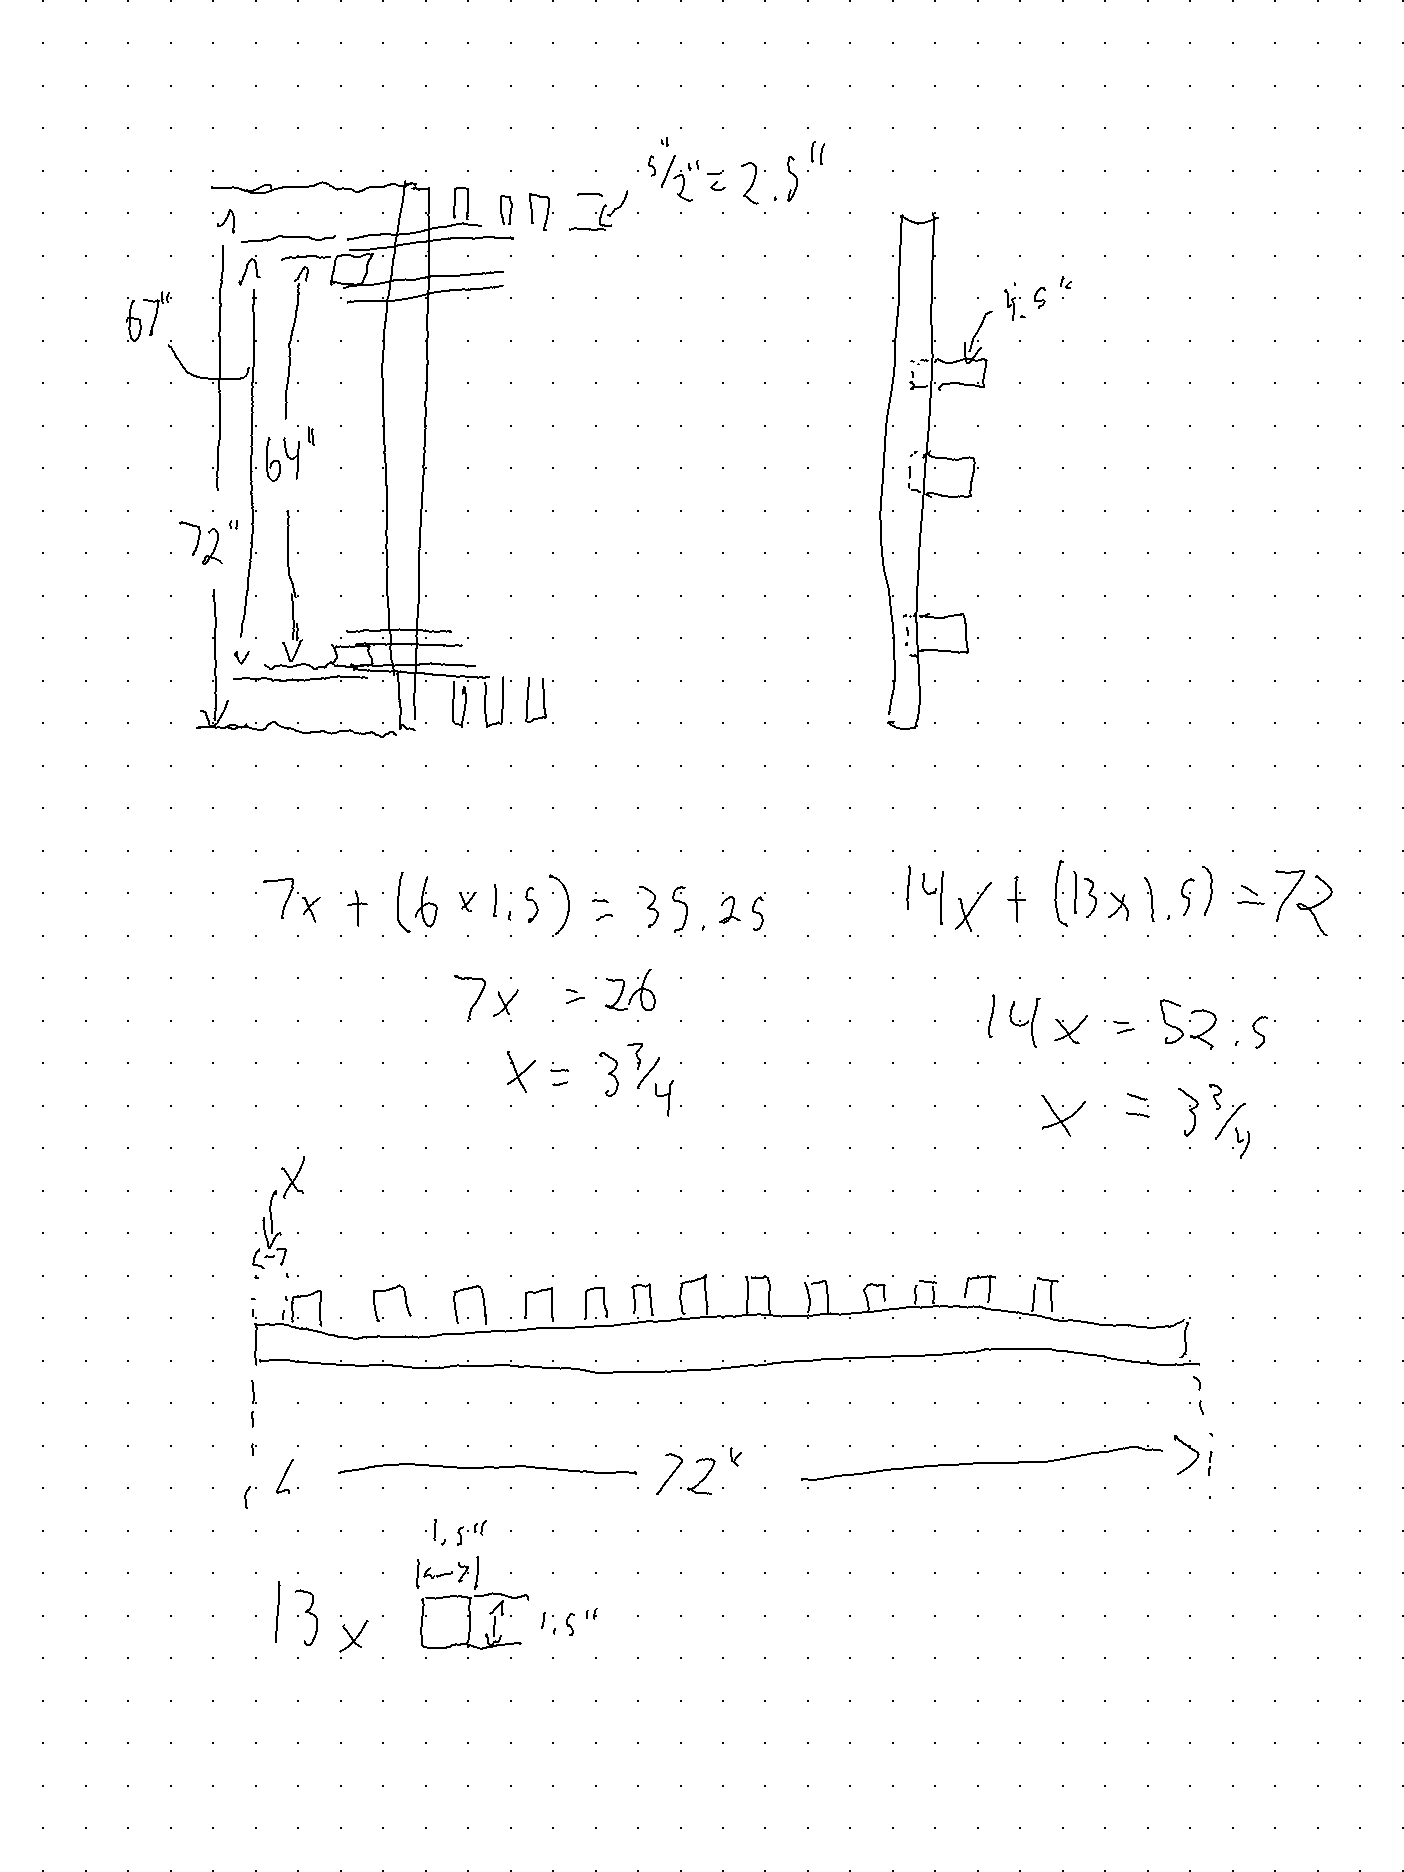 5"/2" = 2.5"
67"
1.5"
64"
72"
7x + (6 x 1.5) = 35.25
7x = 26
x = 3 3/4
14x + (13 x 1.5) = 72
14x = 52.5
x = 3 3/4
x
72"
1.5"
13 x
1.5"